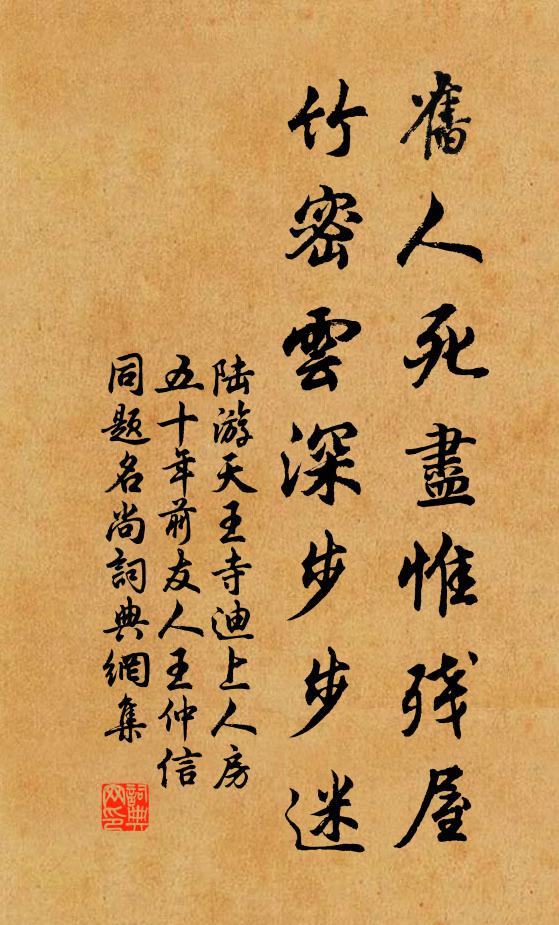 舊人死盡惟残屋
竹密雲深步步迷
陆游天王寺迪上人房
五十年前友人王仲信
同题名尚詞典網集
詞典網印